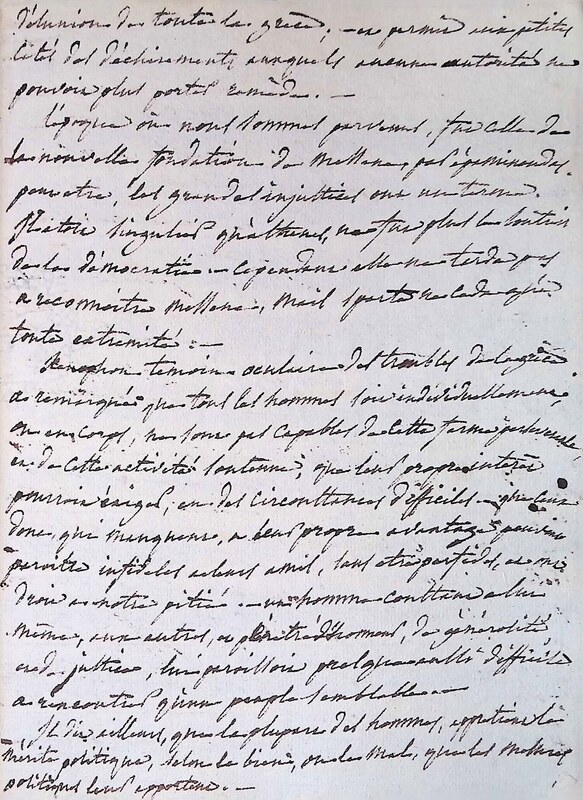 désunion de toute la grèce. — et permis aux petites
cités des déchirements auxquels aucune autorité ne
pouvoit plus porter remède. —
L'époque où nous sommes parvenus, fut celle de
la nouvelle fondation de Messene, par épaminondas.
peut etre, les grandes injustices ont un terme.
Il étoit singulier qu'athenes, ne fut plus le soutien
de la démocratie — cependant elle ne tarda pas
a reconnoitre Messene, mais sparte ne céda qu'à
toute extremité : —
Xenophon temoin oculaire des troubles de la grèce
a remarqué que tous les hommes soit individuellement,
ou en corps, ne sont pas capables de cette ferme
et de cette activité soutenue, que leur propre interet
pourroit éxiger, en des circonstances difficiles — que ceux
donc, qui manquent, a leur propre avantage peuvent
paroitre infideles a leurs amis, sans etre perfides, et ont
droit a notre pitié — un homme constant a lui
même, aux autres, et pénétré d'honneur, de générosité
et de justice, lui paroissoit presque aussi difficile
a rencontrer qu'un peuple semblable —
Il dit ailleurs, que la plupart des hommes, apprétient le
mérite politique, selon le bien, ou le mal, que les mesures
politiques leur apportent. —